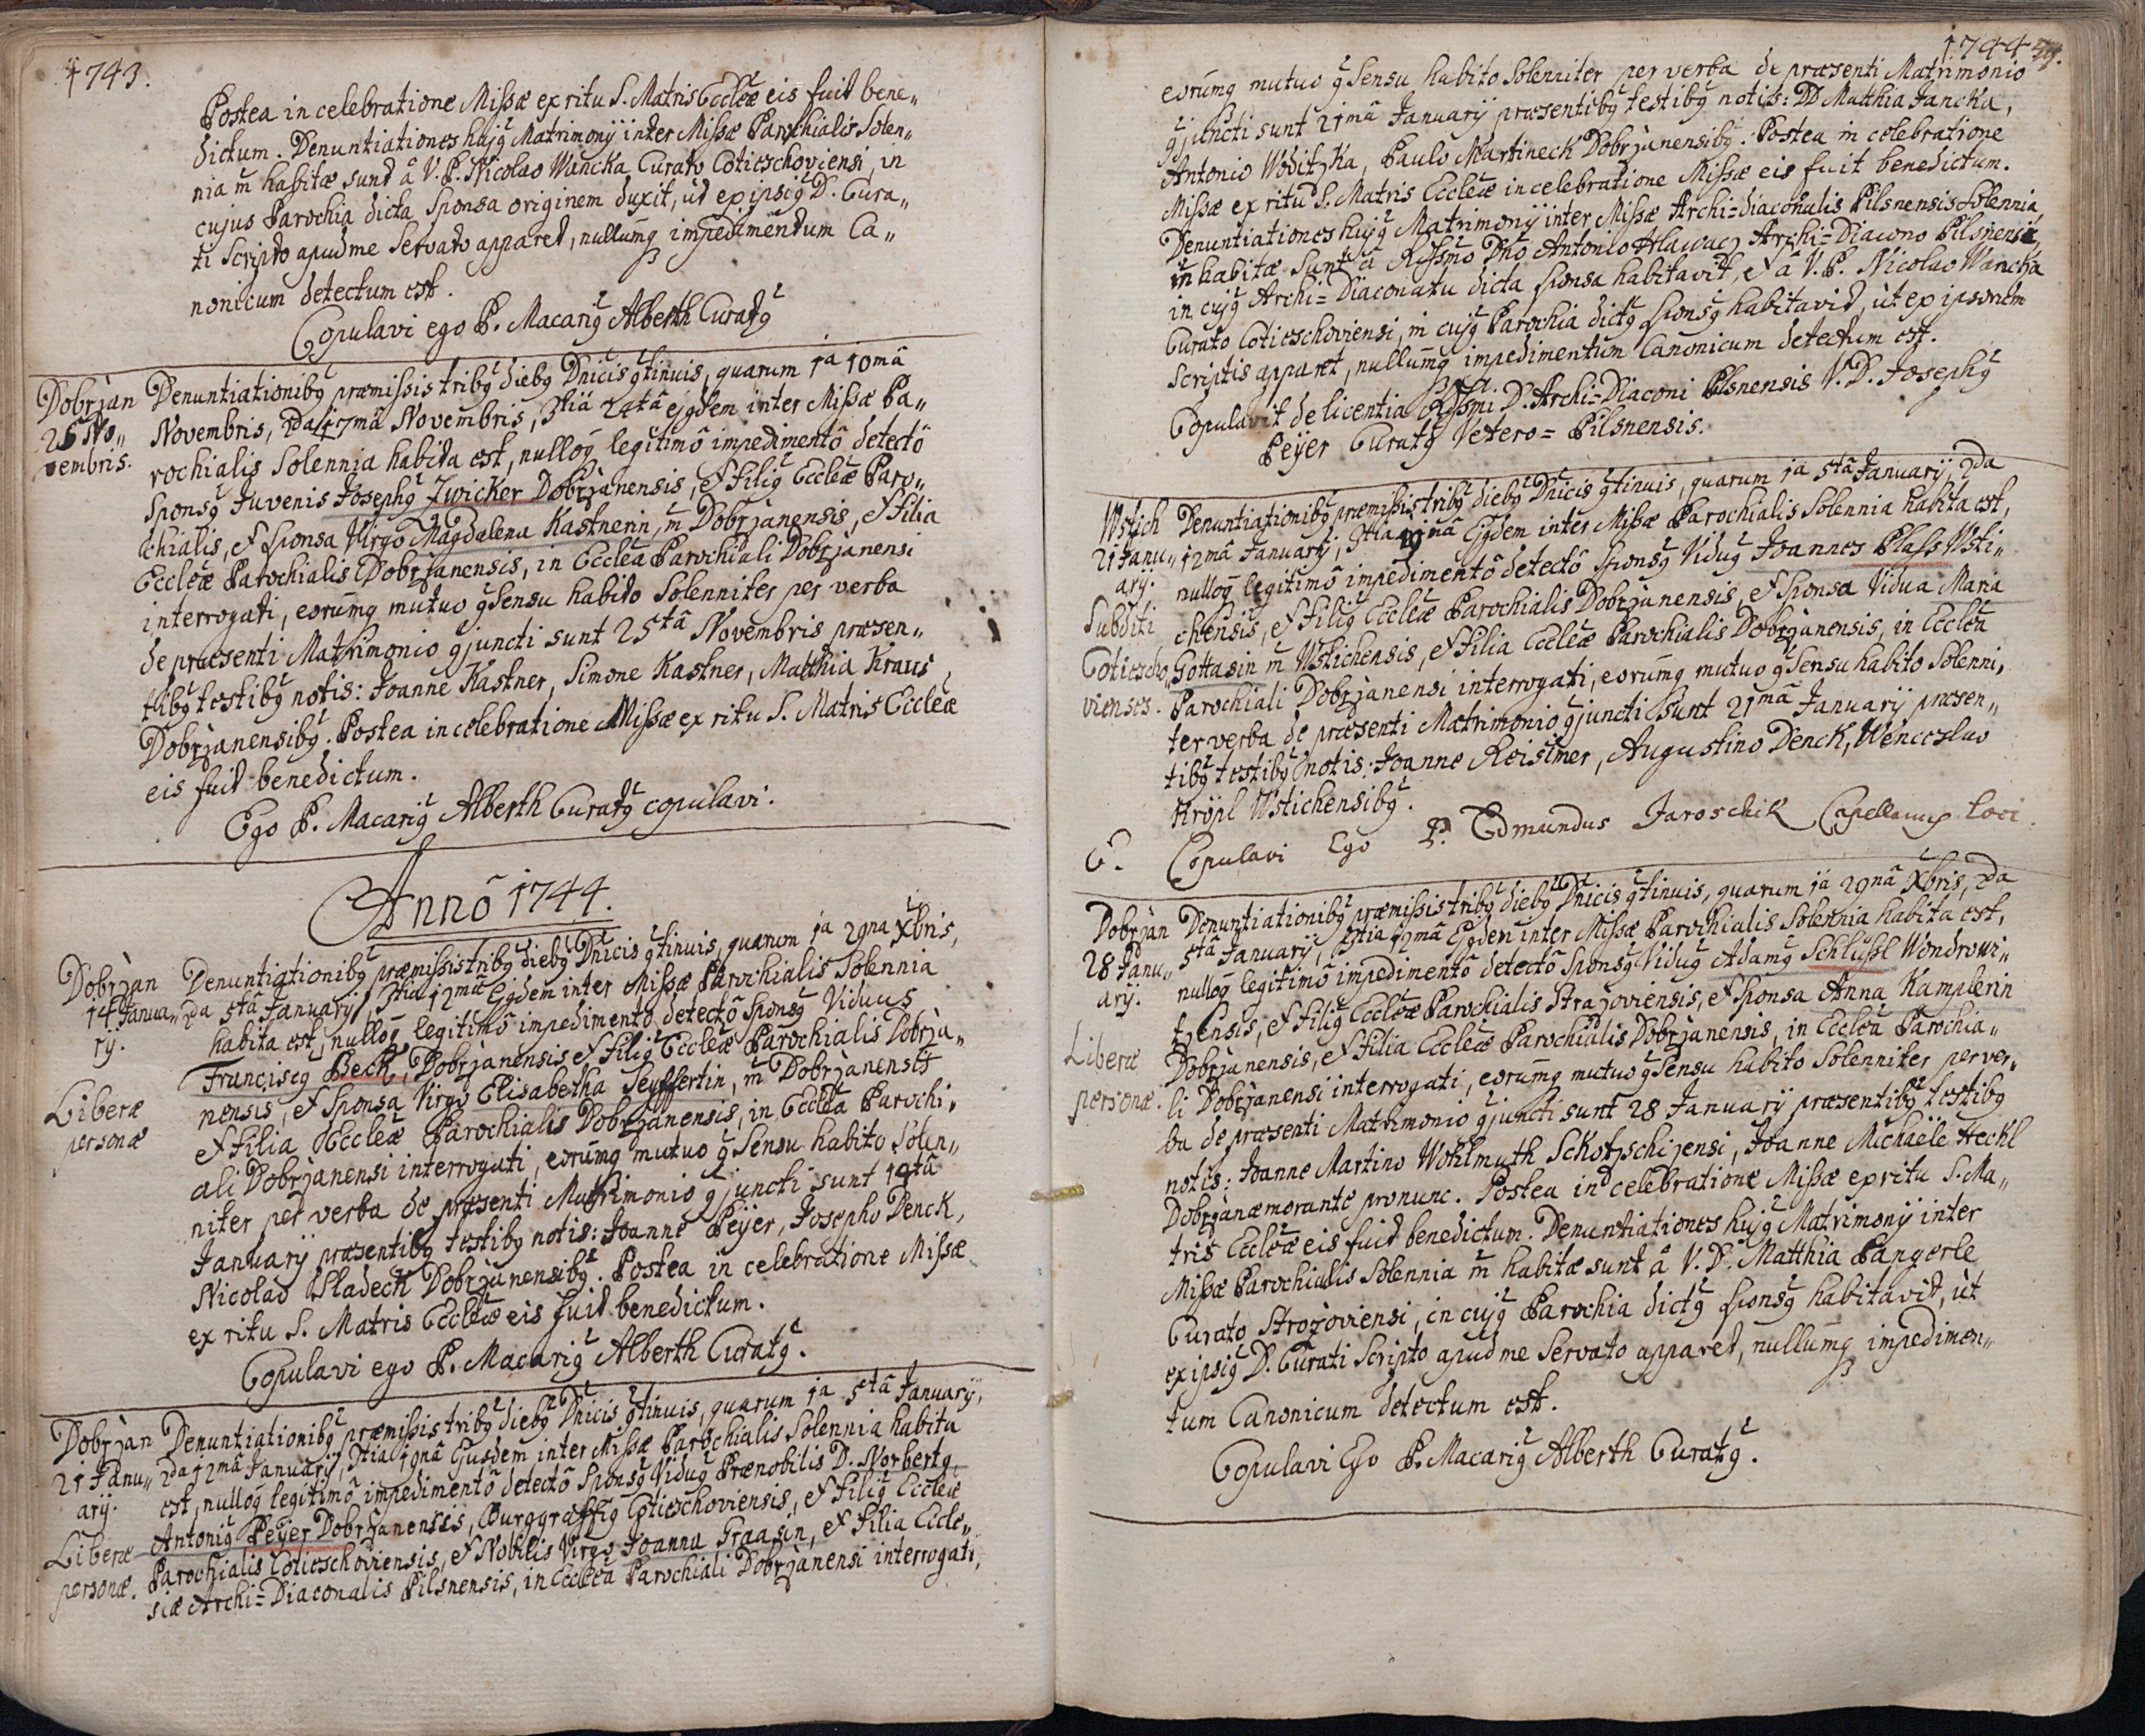 1743.
Postea in celebratione Missæ ex ritu S. Matris Eccleæ eis fuit bene„
dictum. Denuntiationes hujq Matrimonij inter Missæ Parochialis Solen„
nia m̃ habitæ sunt â V. P. Nicolao Wancka Curato Cotieschoviensi, in
cujus Parochia dicta Sponsa originem duxit, ut ex ipsiq D. Cura„
ti Scripto apud me Servato apparet, nullumq impedimentum Ca„
nonicum detectum est.
Copulavi ego P. Macariq Alberth Curatq
Dobrzan
25 No„
vembris.
Denuntiationibq præmissis tribq diebq Dnicis qtinuis, quarum 1a 10mâ
Novembris, 2da 17mâ Novembris, 3tiâ 24tâ ejqdem inter Missæ Pa„
rochialis Solennia habita est, nulloq legitimô impedimentô detectô
Sponsq Juvenis Josephq Zwicker Dobrzanensis, et Filiq Eccleæ Paro„
chialis, et Sponsa Virgo Magdalena Kastnerin, m̃ Dobrzanensis, et Filia
Eccleæ Parochialis Dobrzanensis, in Ecclea Parochiali Dobrzanensi
interrogati, eorumq mutuo qSensu habito Solenniter per verba
de præsenti Matrimonio qjuncti sunt 25tâ Novembris præsen„
tibq testibq notis: Joanne Kastner, Simone Kastner, Matthia Kraus
Dobrzanensibq. Postea in celebratione Missæ ex ritu S. Matris Eccleæ
eis fuit benedictum.
Ego P. Macariq Alberth Curatq copulavi.
Annô 1744.
Dobrzan
14 Janua„
ry.
Liberæ
personæ
Denuntiationibq præmissis tribq diebq Dnicis qtinuis, quarum 1a 29na Xbris,
2da 5tâ Januarij, 3tia 12mâ Ejqdem inter Missæ Parochialis Solennia
habita est, nulloq legitimô impedimentô detectô Sponsq Viduus
Franciscq Beck, Dobrzanensis et Filiq Eccleæ Parochialis Dobrza„
nensis, et Sponsa Virgo Elisabetha Seyffertin, m̃ Dobrzanensis
et Filia Eccleæ Parochialis Dobrzanensis, in Ecclea Parochi„
ali Dobrzanensi interrogati, eorumq mutuo qSensu habito Solen„
niter per verba de præsenti Matrimonio qjuncti sunt 14tâ
Januarij præsentibq testibq notis: Joanne Peijer, Josepho Denck,
Nicolao Sladeck Dobrzanensibq. Postea in celebratione Missæ
ex ritu S. Matris Eccleæ eis fuit benedictum.
Copulavi ego P. Macariq Alberth Curatq.
Dobrzan
21 Janu„
arij.
Liberæ
personæ.
Denuntiationibq præmissis tribq diebq Dnicis qtinuis, quarum 1a 5tâ Januarij,
2da 12mâ Januarij, 3tia 19nâ Ejusdem inter Missæ Parochialis Solennia habita
est, nulloq legitimô impedimentô detectô Sponsq Viduq Prænobilis D. Norbertq
Antoniq Peijer Dobrzanensis, Burggraffiq Cotieschoviensis, et Filiq Eccleæ
Parochialis Cotieschoviensis, et Nobilis Virgo Joanna Fraasin, et Filia Eccle„
siæ Archi=Diaconalis Pilsnensis, in Ecclea Parochiali Dobrzanensi interrogati,
1744
eorumq mutuo qSensu habito Solenniter per verba de præsenti Matrimonio
qjuncti sunt 21mâ Januarij præsentibq testibq notis: DD Matthia Jancka,
Antonio Woditzka, Paulo Martineck Dobrzanensibq. Postea in celebratione
Missæ ex ritu S. Matris Eccleæ in celebratione Missæ eis fuit benedictum.
Denuntiationes hujq Matrimonij inter Missæ Archi=diaconalis Pilsnensis Solennia
m̃ habitæ sunt â Rssmo Dno Antonio Hlawacz Archi=Diacono Pilsnensi,
in cujq Archi=Diaconatu dicta Sponsa habitavit, et â V. P. Nicolao Wancka
Curato Cotieschoviensi, in cujq Parochia dictq Sponsq habitavit, ut ex ipsorum
Scriptis apparet, nullumq impedimentum Canonicum detectum est.
Copulavit de licentia Rssmi D. Archi=Diaconi Pilsnensis V. D. Josephq
Peijer Curatq Vetero=Pilsnensis.
Wstich
21 Janu„
arij.
Subditi
Cotiescho„
vienses.
Denuntiationibq præmissis tribq diebq Dnicis qtinuis, quarum 1a 5tâ Januarij, 2da
12mâ Januarij, 3tia 19nâ Ejqdem inter Missæ Parochialis Solennia habita est,
nulloq legitimô impedimentô detectô Sponsq Viduq Joannes Plass Wsti„
chensis, et Filiq Eccleæ Parochialis Dobrzanensis, et Sponsa Vidua Maria
Gottasin m̃ Wstichensis, et Filia Eccleæ Parochialis Dobrzanensis, in Ecclea
Parochiali Dobrzanensi interrogati, eorumq mutuo qSensu habito Solenni„
ter verba de præsenti Matrimonio qjuncti sunt 21mâ Januarij præsen„
tibq testibq notis: Joanne Reistner, Augustino Denck, Wenceslao
Kröpl Wstichensibq.
C. Copulavi Ego P. Edmundus Jaroschik Capellanus loci.
Dobrzan
28 Janu„
arij.
Liberæ
personæ.
Denuntiationibq præmissis tribq diebq Dnicis qtinuis, quarum 1a 29nâ Xbris, 2da
5tâ Januarij, 3tia 12mâ Ejqdem inter Missæ Parochialis Solennia habita est,
nulloq legitimô impedimentô detectô Sponsq Viduq Adamq Schlüssl Wondrowi„
tzensis, et Filiq Eccleæ Parochialis Strazoviensis, et Sponsa Anna Kamplerin
Dobrzanensis, et Filia Eccleæ Parochialis Dobrzanensis, in Ecclea Parochia„
li Dobrzanensi interrogati, eorumq mutuo qSensu habito Solenniter per ver„
ba de præsenti Matrimonio qjuncti sunt 28 Januarij præsentibq testibq
notis: Joanne Martino Wohlmuth Schotzschizensi, Joanne Michaële Heckl
Dobrzanæ morante pronunc. Postea in celebratione Missæ ex ritu S. Ma„
tris Eccleæ eis fuit benedictum. Denuntiationes hujq Matrimonij inter
Missæ Parochialis Solennia m̃ habitæ sunt â V. D. Matthia Pangerle
Curato Strozoviensi, in cujq Parochia dictq Sponsq habitavit, ùt
ex ipsiq D. Curati Scripto apud me Servato apparet, nullumq impedimen„
tum Canonicum detectum est.
Copulavi Ego P. Macariq Alberth Curatq.